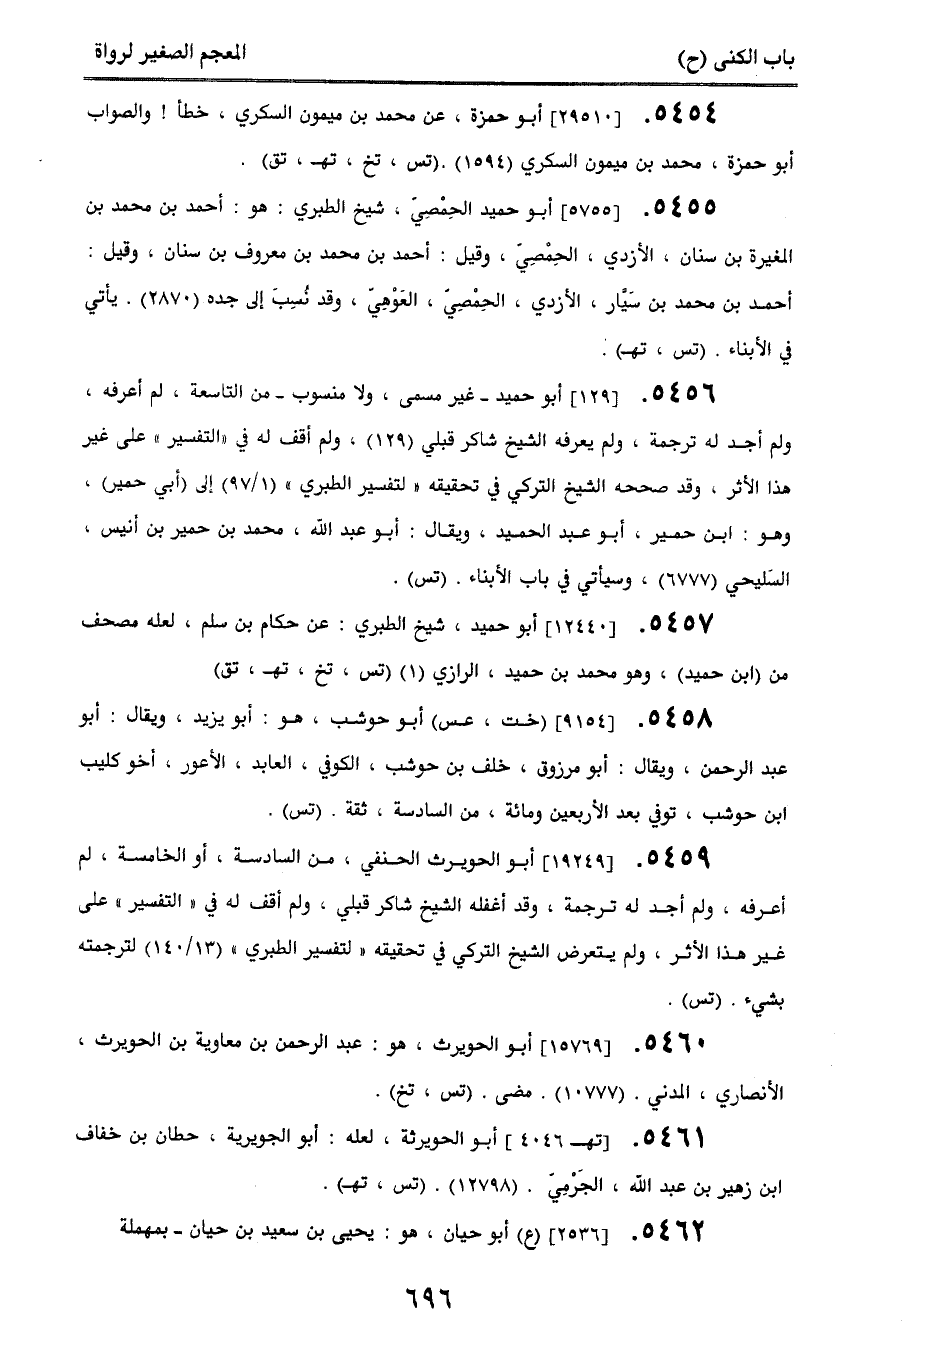 باب الكنى (ح)
المعجم الصغير لرواة
٥٤٥٤. [٢٩٥١٠] أبو حمزة ، عن محمد بن ميمون السكري ، خطأ ! والصواب
أبو حمزة ، محمد بن ميمون السكري (١٥٩٤) .(تس ، تخ ، تهـ ، تق) .
٥٤٥٥. [٥٧٥٥] أبو حميد الحِمْصِيّ ، شيخ الطبري : هو : أحمد بن محمد بن
المغيرة بن سنان ، الأزدي ، الحِمْصِيّ ، وقيل : أحمد بن محمد بن معروف بن سنان ، وقيل :
أحمد بن محمد بن سَيَّار ، الأزدي ، الحِمْصِيّ ، العَوْهِيّ ، وقد نُسِبَ إلى جده (٢٨٧٠) . يأتي
في الأبناء . (تس ، تهـ) .
٥٤٥٦. [١٢٩] أبو حميد ـ غير مسمى ، ولا منسوب ـ من التاسعة ، لم أعرفه ،
ولم أجد له ترجمة ، ولم يعرفه الشيخ شاكر قبلي (١٢٩) ، ولم أقف له في «التفسير » على غير
هذا الأثر ، وقد صححه الشيخ التركي في تحقيقه « لتفسير الطبري » (٩٧/١) إلى (أبي حمير) ،
وهو : ابن حمير ، أبو عبد الحميد ، ويقال : أبو عبد الله ، محمد بن حمير بن أنيس ،
السَّليحي (٦٧٧٧) ، وسيأتي في باب الأبناء . (تس) .
٥٤٥٧. [١٢٤٤٠] أبو حميد ، شيخ الطبري : عن حكام بن سلم ، لعله مصحف
من (ابن حميد) ، وهو محمد بن حميد ، الرازي (١) (تس ، تخ ، تهـ ، تق)
٥٤٥٨. [٩١٥٤] (خت ، عس) أبو حوشب ، هو : أبو يزيد ، ويقال : أبو
عبد الرحمن ، ويقال : أبو مرزوق ، خلف بن حوشب ، الكوفي ، العابد ، الأعور ، أخو كليب
ابن حوشب ، توفي بعد الأربعين ومائة ، من السادسة ، ثقة . (تس) .
٥٤٥٩. [١٩٢٤٩] أبو الحويرث الحنفي ، من السادسة ، أو الخامسة ، لم
أعرفه ، ولم أجد له ترجمة ، وقد أغفله الشيخ شاكر قبلي ، ولم أقف له في « التفسير » على
غير هذا الأثر ، ولم يتعرض الشيخ التركي في تحقيقه « لتفسير الطبري » (١٤٠/١٣) لترجمته
بشيء . (تس) .
٥٤٦٠. [١٥٧٦٩] أبو الحويرث ، هو : عبد الرحمن بن معاوية بن الحويرث ،
الأنصاري ، المدني . (١٠٧٧٧) . مضى . (تس ، تخ) .
٥٤٦١. [تهـ ٤٠٤٦ ] أبو الحويرثة ، لعله : أبو الجويرية ، حطان بن خفاف
ابن زهير بن عبد الله ، الجَرْمِيّ . (١٢٧٩٨) . (تس ، تهـ) .
٥٤٦٢. [٢٥٣٦] (ع) أبو حيان ، هو : يحيى بن سعيد بن حيان ـ بمهملة
٦٩٦